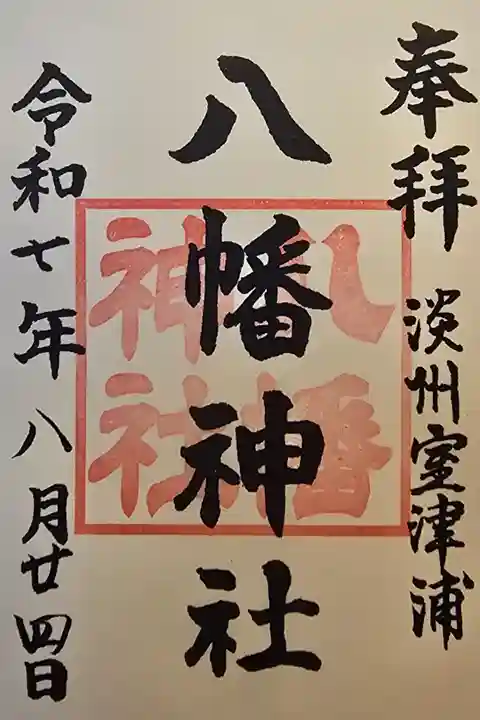 奉拝
淡州室津浦
八幡神社
八幡
神社
令和七年八月廿四日